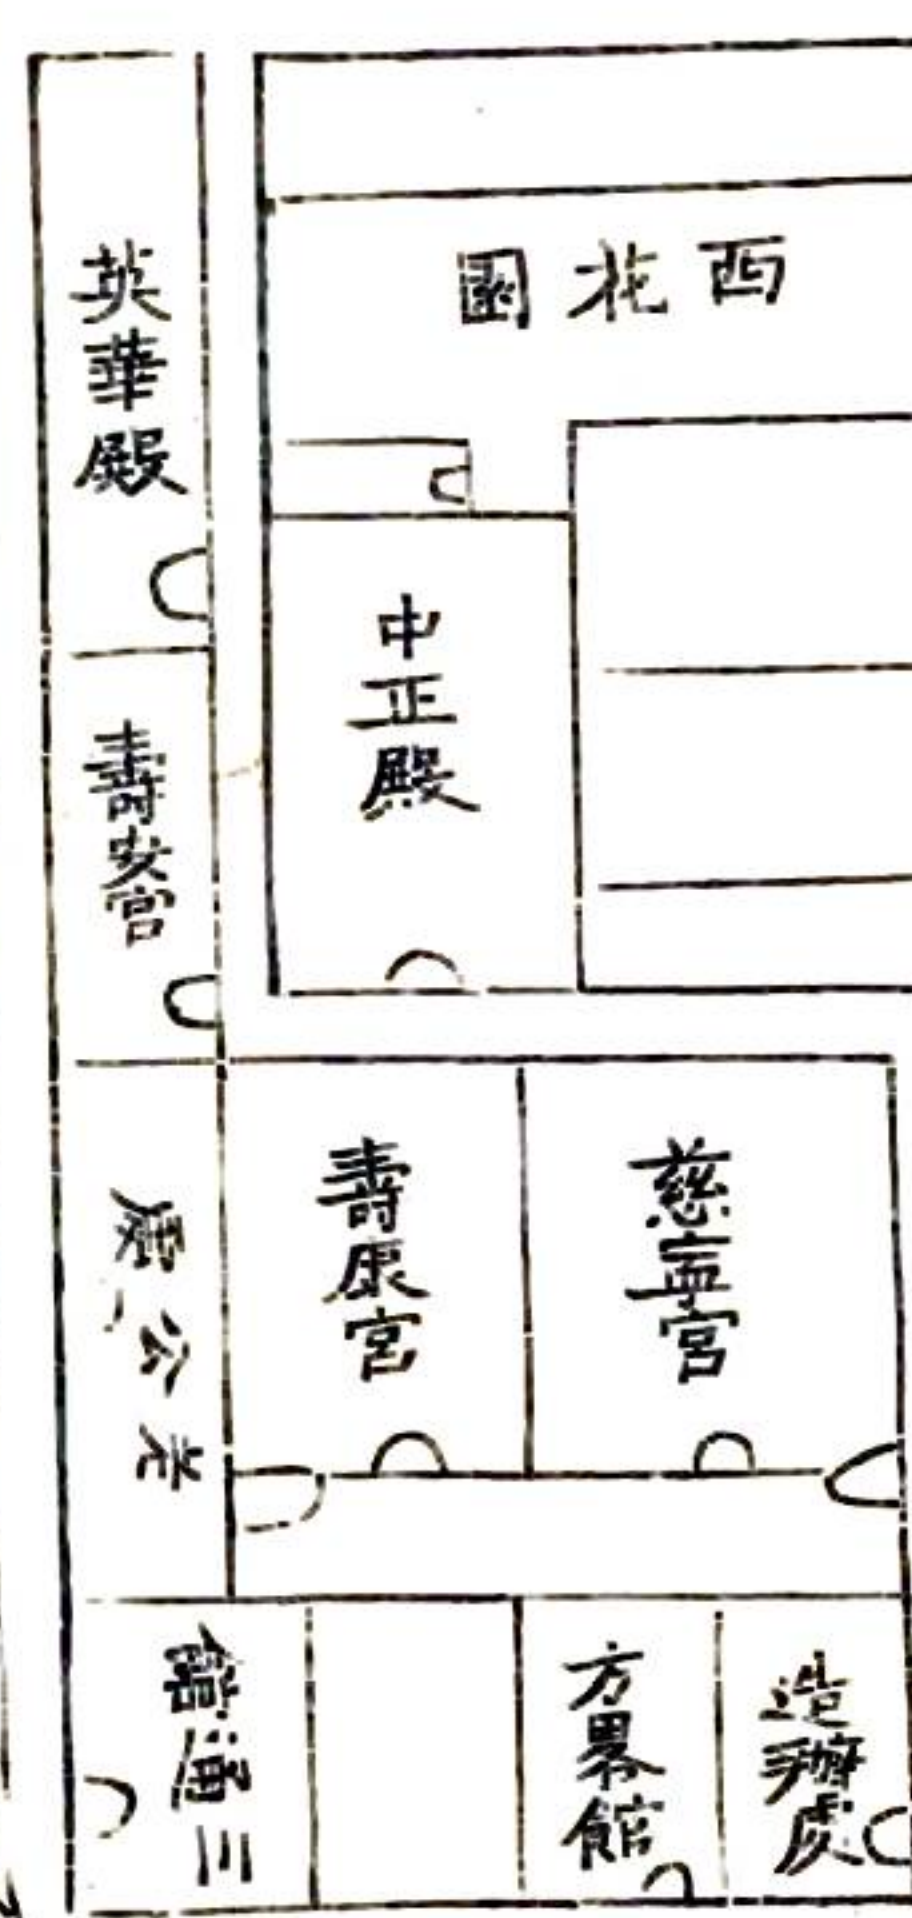 西花園
英華殿
中正殿
壽安宮
慈寧宮
壽康宮
老公處
造辦處
方畧館
三通館